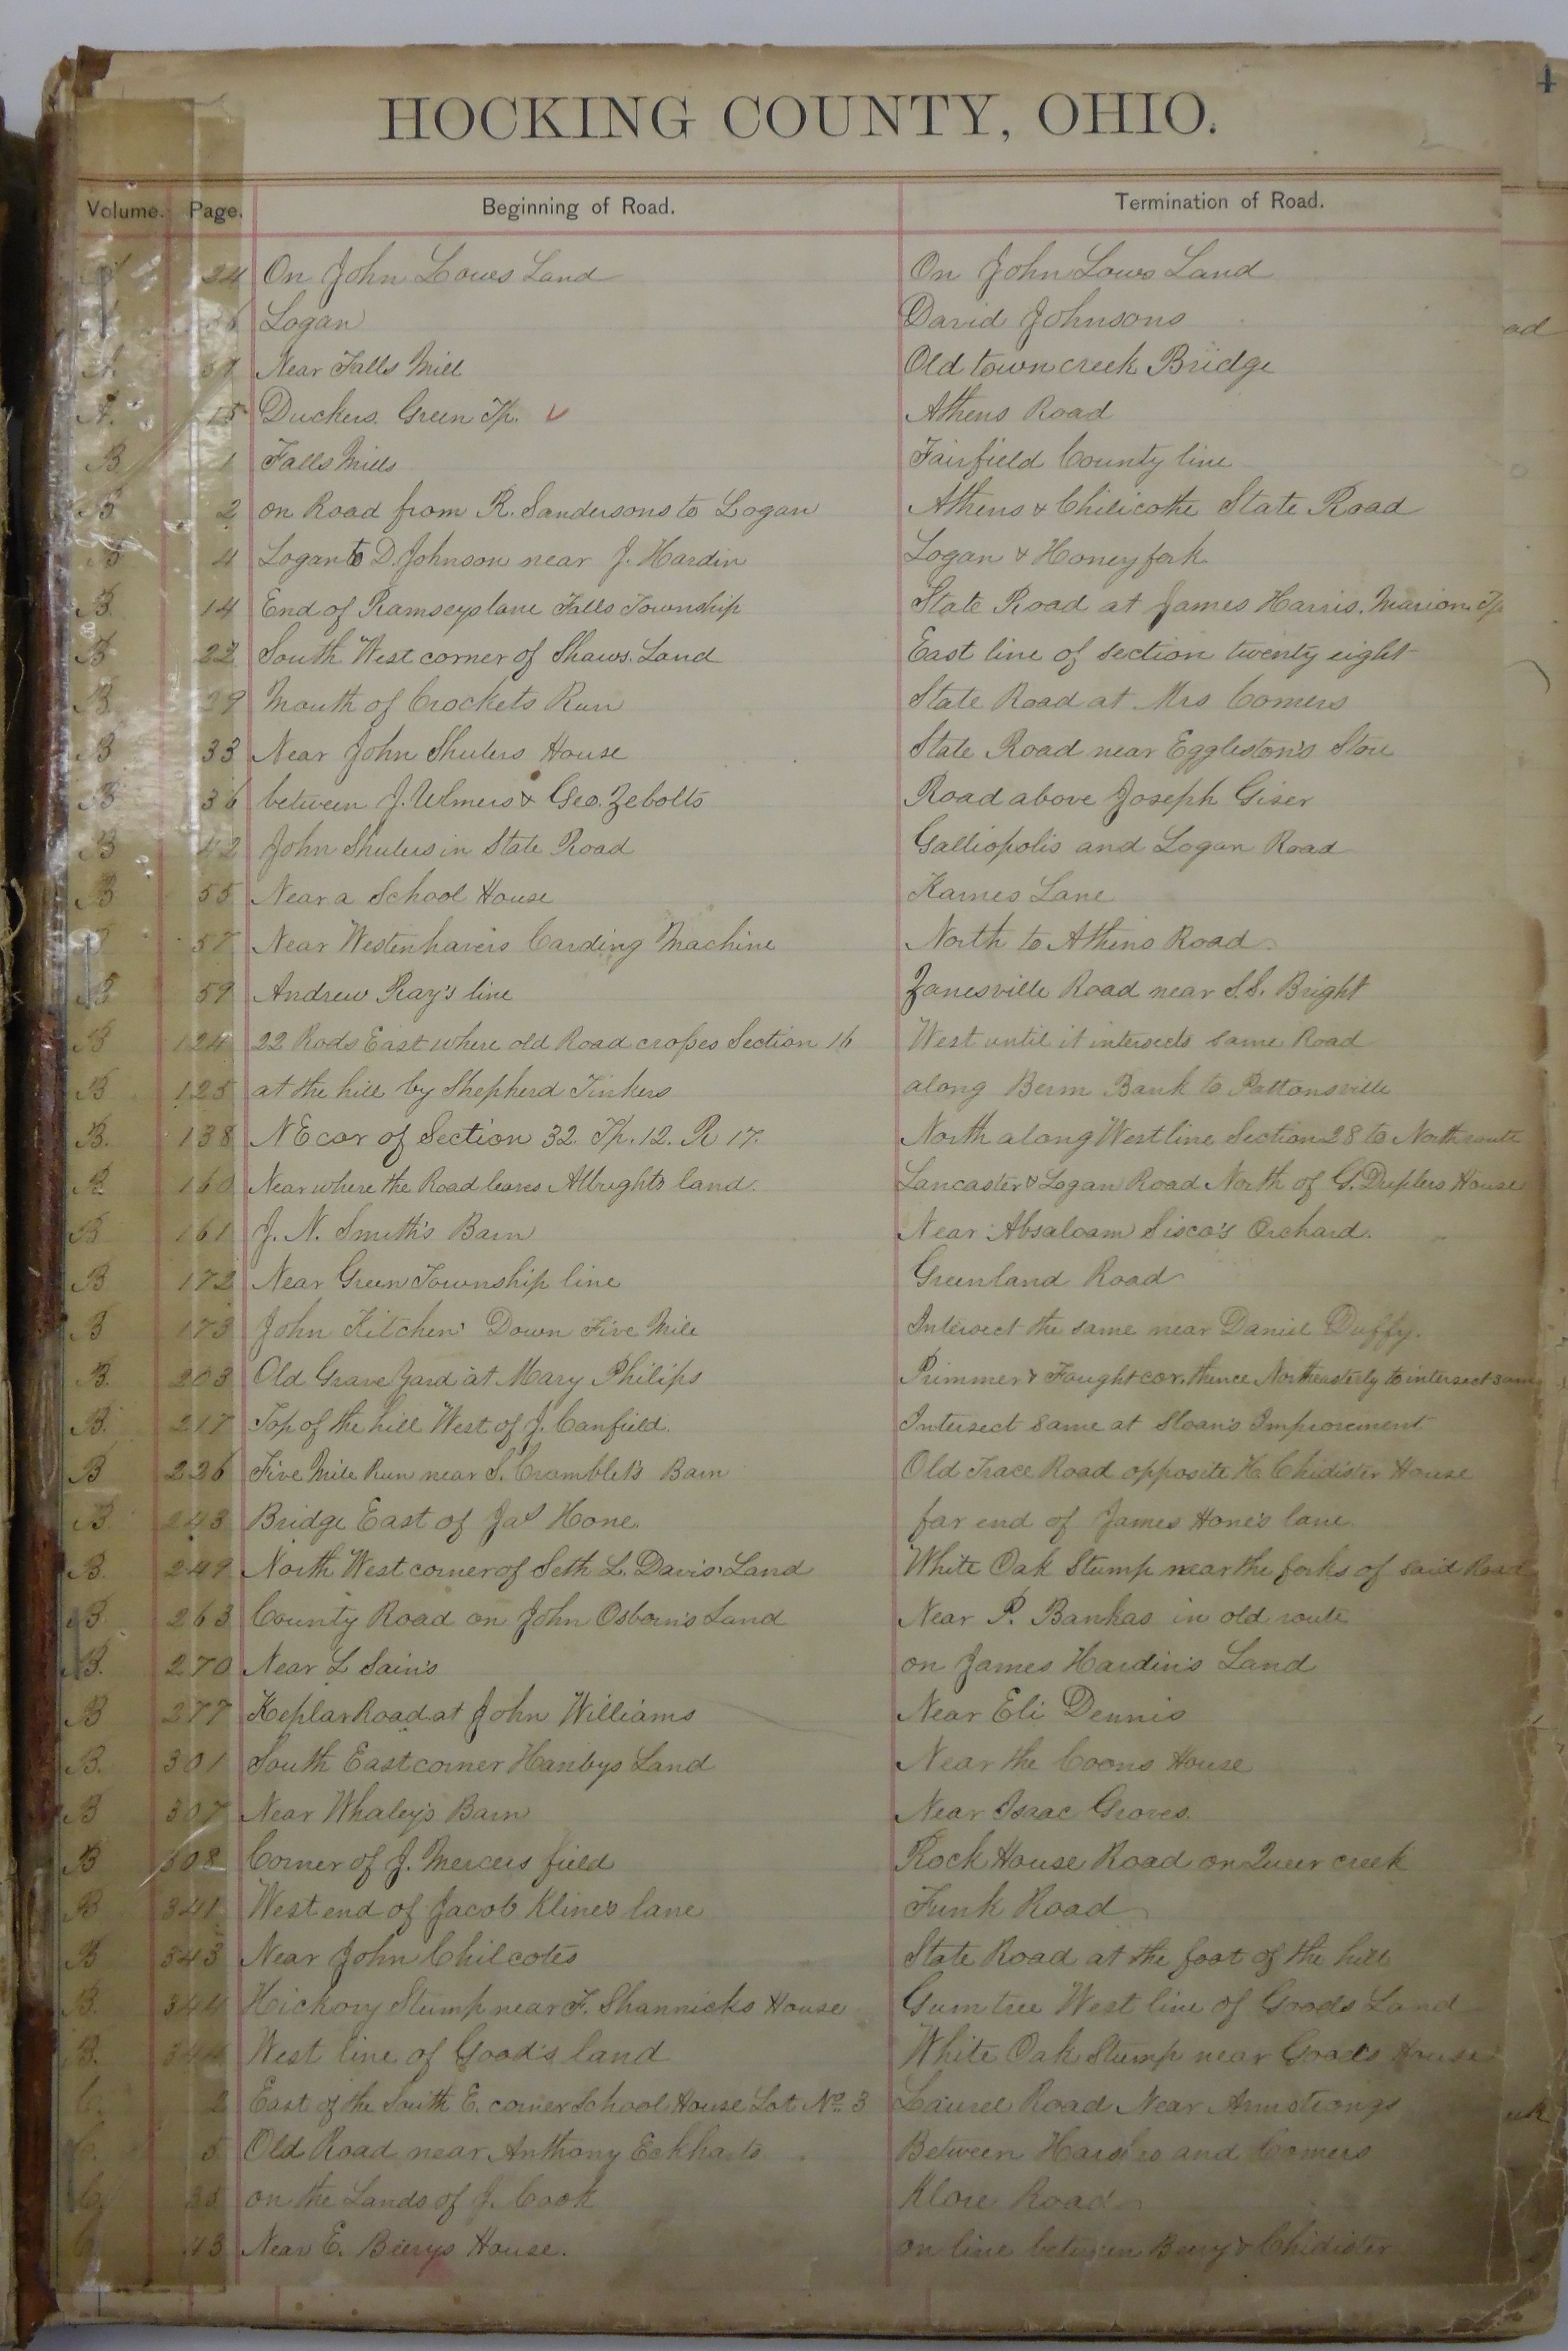 4
HOCKING COUNTY, OHIO.
Volume. Page. Beginning of Road. Termination of Road.
24 On John Lows Land On John Lows Land
Logan David Johnsons
A. 37 Near Falls Mill Old town creek Bridge
A. 15 Duckers Green Tp. ✓ Athens Road
B 1 Falls Mills Fairfield County line
B 2 on Road from R. Sandersons to Logan Athens & Chilicothe State Road
B 4 Logan to D. Johnson near J. Hardin Logan & Honey fork
B. 14 End of Ramseys lane Falls Township State Road at James Harris. Marion Tp
B 22 South West corner of Shaws Land East line of Section twenty eight
B 29 Mouth of Crockets Run State Road at Mrs Comers
B 33 Near John Shulers House State Road near Eggleston's Store
B 36 between J. Ulmers & Geo. Zebolts Road above Joseph Giser
B 42 John Shulers in State Road Galliopolis and Logan Road
B 55 Near a School House Karnes Lane
57 Near Westenhavers Carding Machine North to Athens Road
B 59 Andrew Ray's line Zanesville Road near S.S. Bright
B 124 22 Rods East where old Road crosses Section 16 West until it intersects Same Road
B 125 at the hill by Shepherd Tinkers along Berm Bank to Pattonsville
B. 138 NE cor of Section 32 Tp. 12. R 17. North along West line Section 28 to North
B. 160 Near where the Road leaves Albrights land. Lancaster & Logan Road North of G. House
B 161 J. N. Smith's Barn Near Absaloam Sisco's Orchard.
B 172 Near Green Township line Greenland Road
B 173 John Kitchen Down Five Mile Intersect the same near Daniel Duffy.
B. 203 Old Grave Yard at Mary Philips Primmer & Faught cor. thence Northeasterly to intersect same
B. 217 Top of the hill West of J. Canfield. Intersect Same at Sloan's Improvement
B 226 Five Mile Run near S. Cramblet's Barn Old Trace Road opposite H. Chidister House
B 243 Bridge East of Jas Hone. far end of James Hone's lane
B. 249 North West corner of Seth L. Davis' Land White Oak Stump near the forks of said Road
B. 263 County Road on John Osborn's Land Near P. Bankas in old route
B. 270 Near L Sain's on James Hardin's Land
B 277 Keplar Road at John Williams Near Eli Dennis
B. 301 South East corner Hanbys Land Near the Coons House
B 307 Near Whaley's Barn Near Isaac Groves.
B 308 Corner of J. Mercers field Rock House Road on Queer creek
B 341 West end of Jacob Kline's lane Funk Road
B 343 Near John Chilcotes State Road at the foot of the hill
B. 344 Hickory Stump near F. Shannicks House Gum tree West line of Goods Land
B. 344 West line of Good's land White Oak Stump near Goods House
C. 2 East of the South E. corner School House Lot No. 3 Laurel Road Near Armstrongs
C. 5 Old Road near Anthony Eckharts Between and Comers
C. 35 on the Lands of J. Cook Klore Road
C. 43 Near E. Bierys House. on line between Beery & Chidister